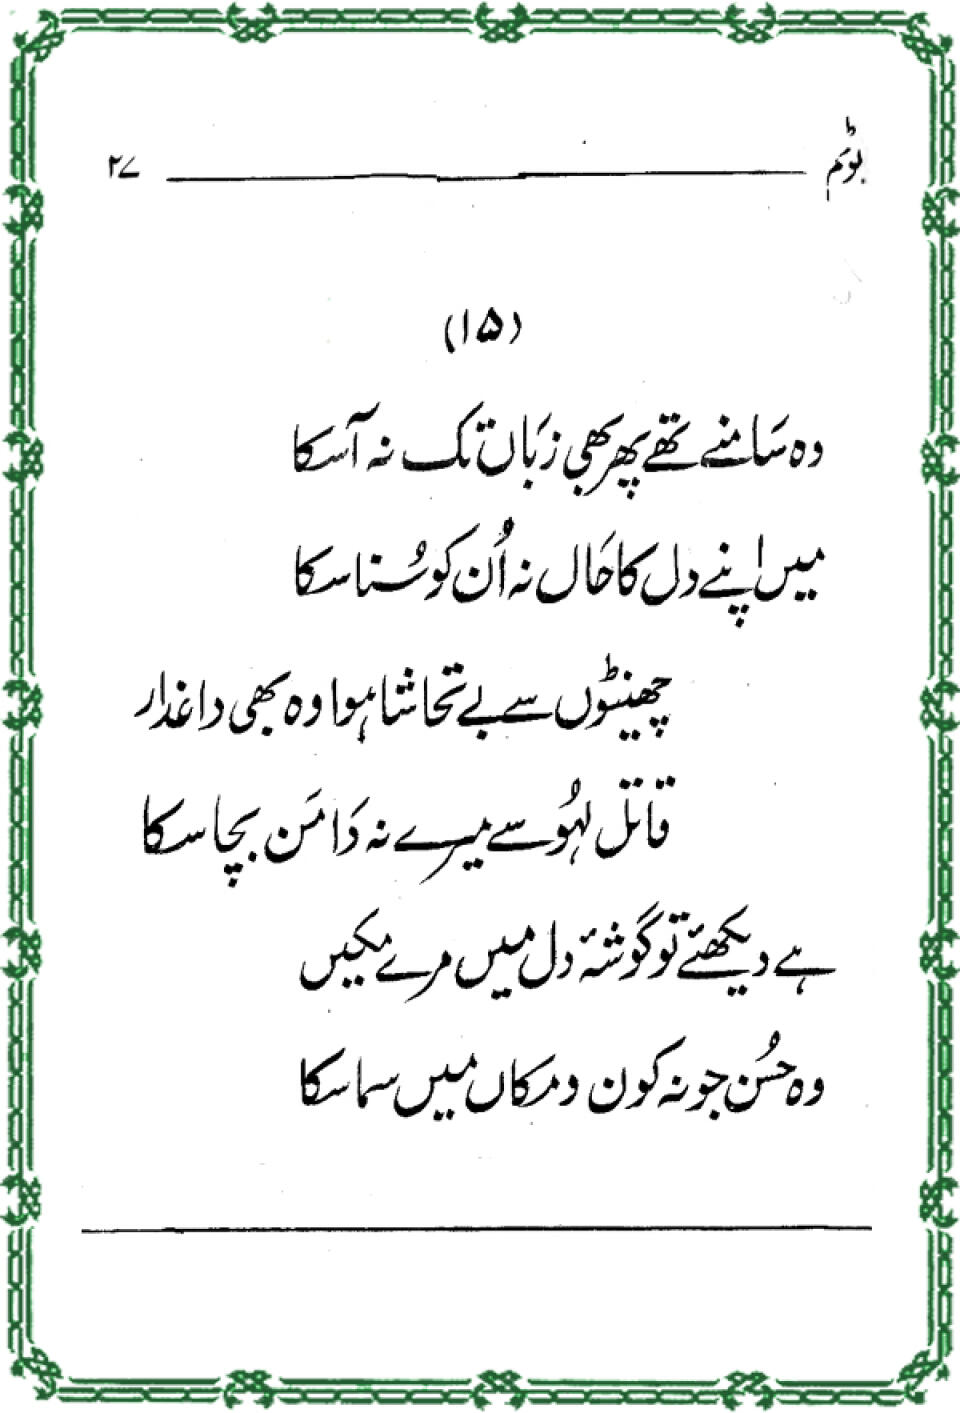 بوٹم ۲۷
(۱۵)
وہ سَامنے تھے پھر بھی زبَان تک نہ آسکا
میں اپنے دل کا حَال نہ اُن کو سُنا سکا
چھینٹوں سے بے تحاشا ہوا وہ بھی داغدار
قاتل لہُو سے میرے نہ دَامَن بچا سکا
ہے دیکھئے تو گوشۂ دل میں مرے مکیں
وہ حُسن جو نہ کون و مکاں میں سما سکا